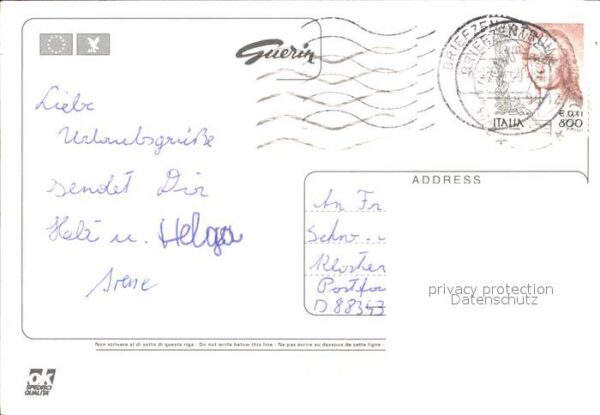 Guerin
BRIEFZENTRUM
BRIEFZENTRUM
ITALIA
€ 0,41
800
Liebe
Urlaubsgrüße
sendet Dir
u. Helga
Irene
ADDRESS
An Fr
Schw
Kloster
Postfac
D 88343
privacy protection
Datenschutz
Non scrivere al di sotto di questa riga - Do not write below this line - Ne pas écrire au dessous de cette ligne
ok
SPEDISCI
QUALITÀ